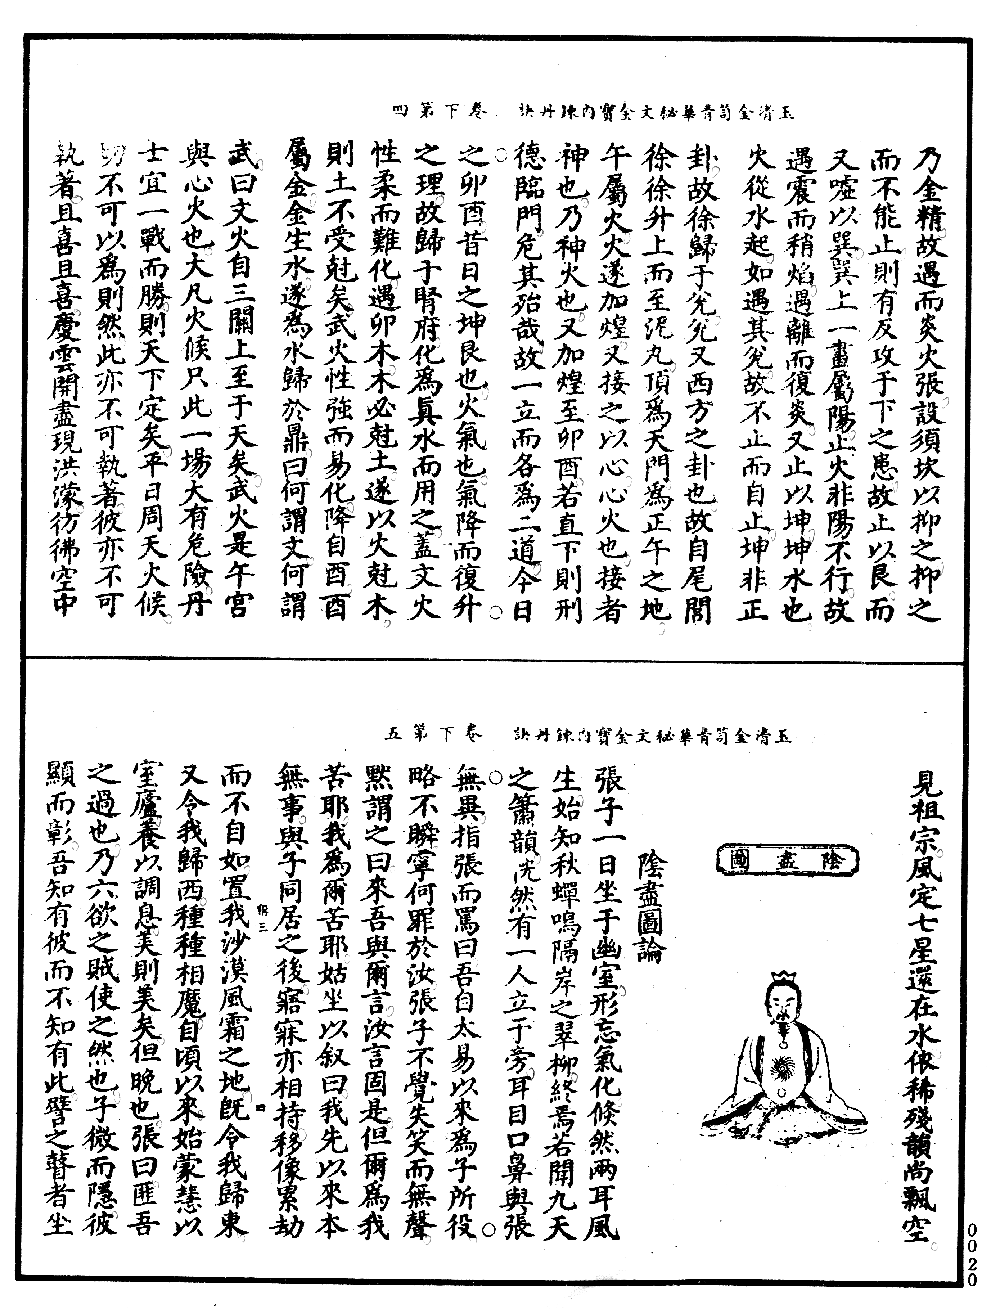 玉清金笥青華秘文金寶內鍊丹訣　卷下第四
乃金精故遇而炎火張設須坎以抑之抑之
而不能止則有反攻于下之患故止以艮而
又噓以巽巽上一畫屬陽止火非陽不行故
遇震而稍焰遇離而復炎又止以坤坤水也
火從水起如遇其兌故不止而自止坤非正
卦故徐歸于兌兌又西方之卦也故自尾閭
徐徐升上而至泥丸頂爲天門爲正午之地
午屬火火遂加煌又接之以心心火也接者
神也乃神火也又加煌至卯酉若直下則刑
德臨門危其殆哉故一立而各爲二道今日
之卯酉昔日之坤艮也火氣也氣降而復升
之理故歸于腎府化爲眞水而用之蓋文火
性柔而難化遇卯木木必尅土遂以火尅木
則土不受尅矣武火性強而易化降自酉酉
屬金金生水遂爲水歸於鼎曰何謂文何謂
武曰文火自三關上至于天矣武火是午宮
與心火也大凡火候只此一場大有危險丹
士宜一戰而勝則天下定矣平日周天火候
切不可以爲則然此亦不可執著彼亦不可
執著且喜且喜慶雲開盡現洪濛彷彿空中
玉清金笥青華秘文金寶內鍊丹訣　卷下第五
見祖宗風定七星還在水依稀殘韻尚飄空
陰盡圖
陰盡圖論
張子一日坐于幽室形忘氣化倏然兩耳風
生始知秋蟬鳴隔岸之翠柳終焉若聞九天
之簫韻恍然有一人立于旁耳目口鼻與張
無異指張而罵曰吾自太易以來爲子所役
略不瞬寧何罪於汝張子不覺失笑而無聲
默謂之曰來吾與爾言汝言固是但爾爲我
苦耶我爲爾苦耶姑坐以叙曰我先以來本
無事與子同居之後寤寐亦相持移像累劫
稱三
四
而不自如置我沙漠風霜之地旣令我歸東
又令我歸西種種相魔自頃以來始蒙慧以
室廬養以調息美則美矣但晚也張曰匪吾
之過也乃六欲之賊使之然也子微而隱彼
顯而彰吾知有彼而不知有此譬之瞽者坐
0020